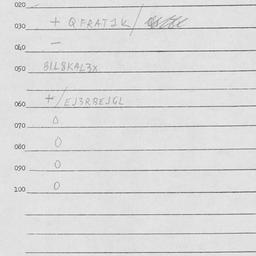 020
030 + QFRATJK/
040 —
050 BIL8KAL3X
060 +/EJ3RBEJGL
070 0
080 0
090 0
100 0